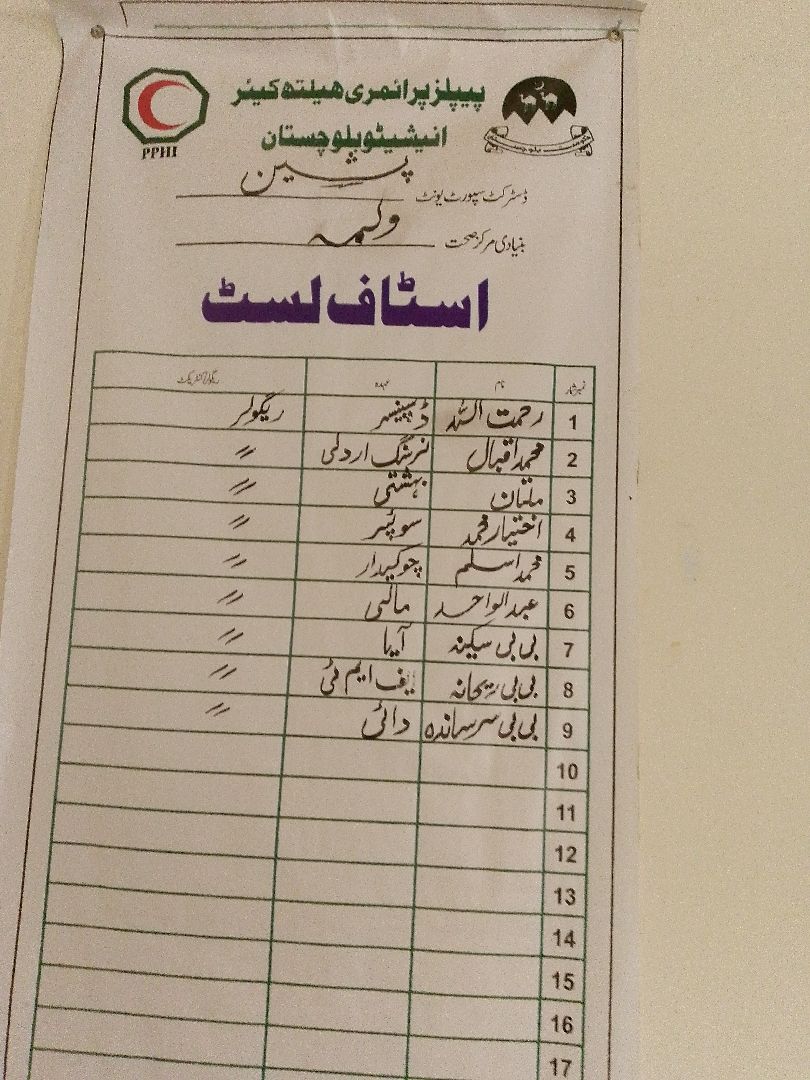 پیپلز پرائمری ھیلتھ کیئر
انیشیٹو بلوچستان
PPHI
ڈسٹرکٹ سپورٹ یونٹ پشین
بنیادی مرکز صحت ولمہ
اسٹاف لسٹ
نمبر شمار نام عہدہ ریگولر/کنٹریکٹ
1 رحمت اللہ ڈسپنسر ریگولر
2 محمد اقبال نرسنگ اردلی 〃
3 ملتان بہشتی 〃
4 اختیار محمد سوئپر 〃
5 محمد اسلم چوکیدار 〃
6 عبدالواحد مالی 〃
7 بی بی سکینہ آیا 〃
8 بی بی ریحانہ ایف ایم ٹی 〃
9 بی بی دائی 〃
10
11
12
13
14
15
16
17